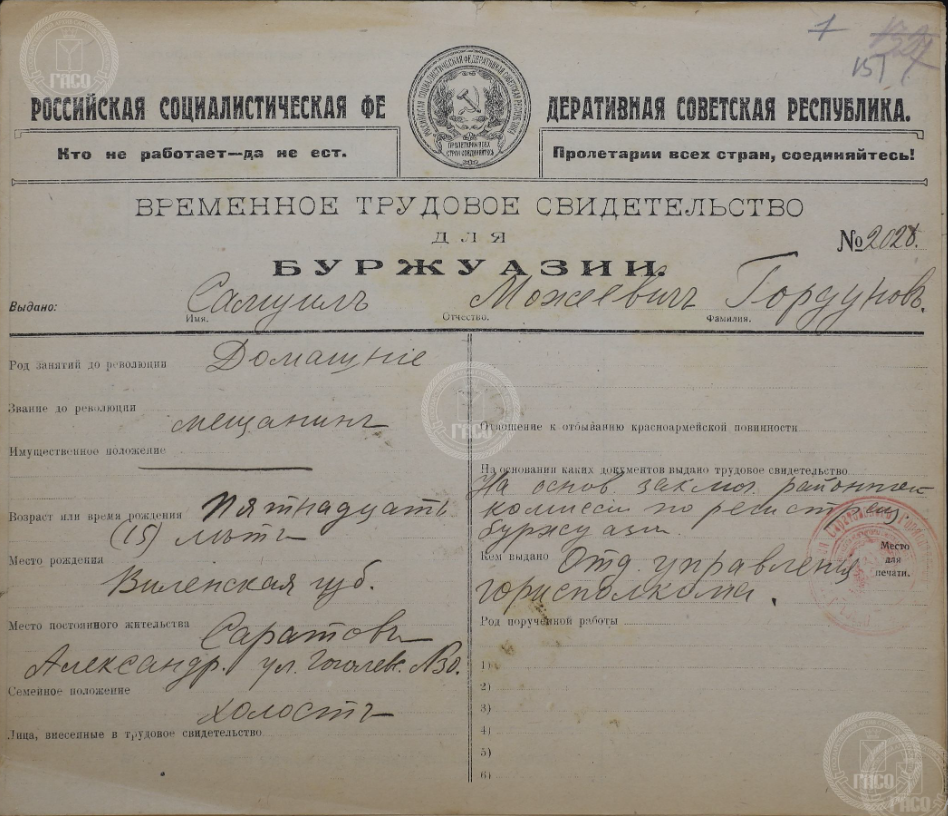 1
151
РОССИЙСКАЯ СОЦИАЛИСТИЧЕСКАЯ ФЕДЕРАТИВНАЯ СОВЕТСКАЯ РЕСПУБЛИКА.
ПРОЛЕТАРИИ ВСЕХ СТРАН СОЕДИНЯЙТЕСЬ
Кто не работает—да не ест.
Пролетарии всех стран, соединяйтесь!
ВРЕМЕННОЕ ТРУДОВОЕ СВИДЕТЕЛЬСТВО
ДЛЯ
№ 2028.
БУРЖУАЗИИ.
Выдано: Самуилъ Гордуновъ
Имя. Отчество. Фамилия.
Род занятий до революции Домашніе
Звание до революции мещанинъ
Имущественное положение
Возраст или время рождения Пятнадцать
(15) летъ
Место рождения
Виленская губ.
Место постоянного жительства Саратовъ
Александр. ул. Гоголев. №30.
Семейное положение
холостъ
Лица, внесенные в трудовое свидетельство
Отношение к отбыванию красноармейской повинности
На основании каких документов выдано трудовое свидетельство
На основ. заключ. районной
комиссии по регистрац.
буржуази
Кем выдано Отд. управления
горисполкома.
Место
для
печати.
Род порученной работы
1)
2)
3)
4)
5)
6)
ГАСО
ГАСО
ГАСО
ГАСО